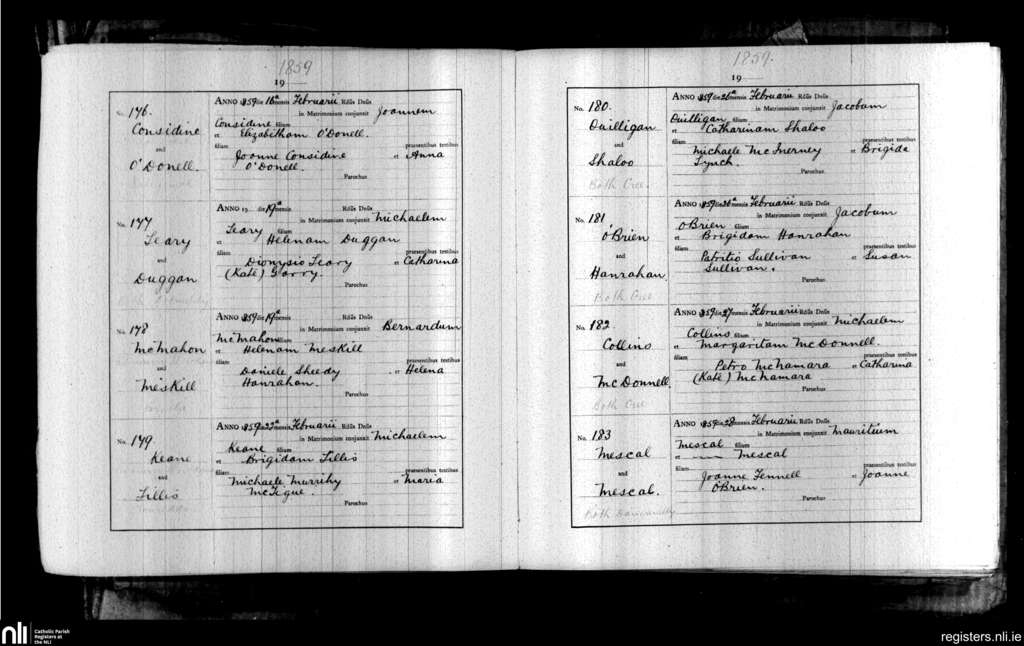 1859
19
No. 176.
Considine
and
O'Donell.
ANNO 1859 die 16a mensis Februarii Rdus Dnus
in Matrimonium conjunxit Joannem
Considine filium
et Elizabetham O'Donell.
filiam praesentibus testibus
Joanne Considine et Anna
O'Donell.
Parochus
No. 177
Leary
and
Duggan
ANNO 19 die 19a mensis Rdus Dnus
in Matrimonium conjunxit Michaelem
Leary filium
et Helenam Duggan
filiam praesentibus testibus
Dionysio Leary et Catharina
(Kate) Garry.
Parochus
No. 178
McMahon
and
Meskill
ANNO 1859 die 19a mensis Rdus Dnus
in Matrimonium conjunxit Bernardum
McMahon filium
et Helenam Meskill
filiam praesentibus testibus
Daniele Sheedy et Helena
Hanrahan.
Parochus
No. 179
Keane
and
Lillis
ANNO 1859 die 22a mensis Februarii Rdus Dnus
in Matrimonium conjunxit Michaelem
Keane filium
et Brigidam Lillis
filiam praesentibus testibus
Michaele Murrihy et Maria
McTigue.
Parochus
1859.
19
No. 180.
Quilligan
and
Shaloo
Both Cree.
ANNO 1859 die 26a mensis Februarii Rdus Dnus
in Matrimonium conjunxit Jacobum
Quilligan filium
et Catharinam Shaloo
filiam praesentibus testibus
Michaele McInerney et Brigida
Lynch.
Parochus
No. 181
O'Brien
and
Hanrahan.
Both Cree
ANNO 1859 die 26a mensis Februarii Rdus Dnus
in Matrimonium conjunxit Jacobum
O'Brien filium
et Brigidam Hanrahan
filiam praesentibus testibus
Patritio Sullivan et Susan
Sullivan.
Parochus
No. 182.
Collins
and
McDonnell.
Both Cree
ANNO 1859 die 27 mensis Februarii Rdus Dnus
in Matrimonium conjunxit Michaelem
Collins filium
et Margaritam McDonnell.
filiam praesentibus testibus
Petro McNamara et Catharina
(Kate) McNamara
Parochus
No. 183
Mescal
and
Mescal.
Both
ANNO 1859 die 28 mensis Februarii Rdus Dnus
in Matrimonium conjunxit Mauritium
Mescal filium
et Mescal
filiam praesentibus testibus
Joanne Fennell et Joanne
O'Brien.
Parochus
nli Catholic Parish
Registers at
the NLI
registers.nli.ie